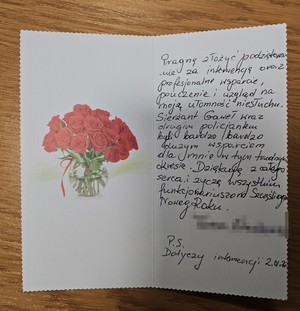 Pragnę złożyć podziękowa-
nie za interwencję oraz
profesjonalne wsparcie,
pouczenie i wzgląd na
moją ułomność niesłuchu.
Sierżant Gaweł wraz
drugim policjantem
byli bardzo, bardzo
dużym wsparciem
dla mnie w tym trudnym
okresie. Dziękuję z całego
serca i życzę wszystkim
funkcjonariuszom Szczęśliwego
Nowego Roku.
P.S.
Dotyczy interwencji 2.